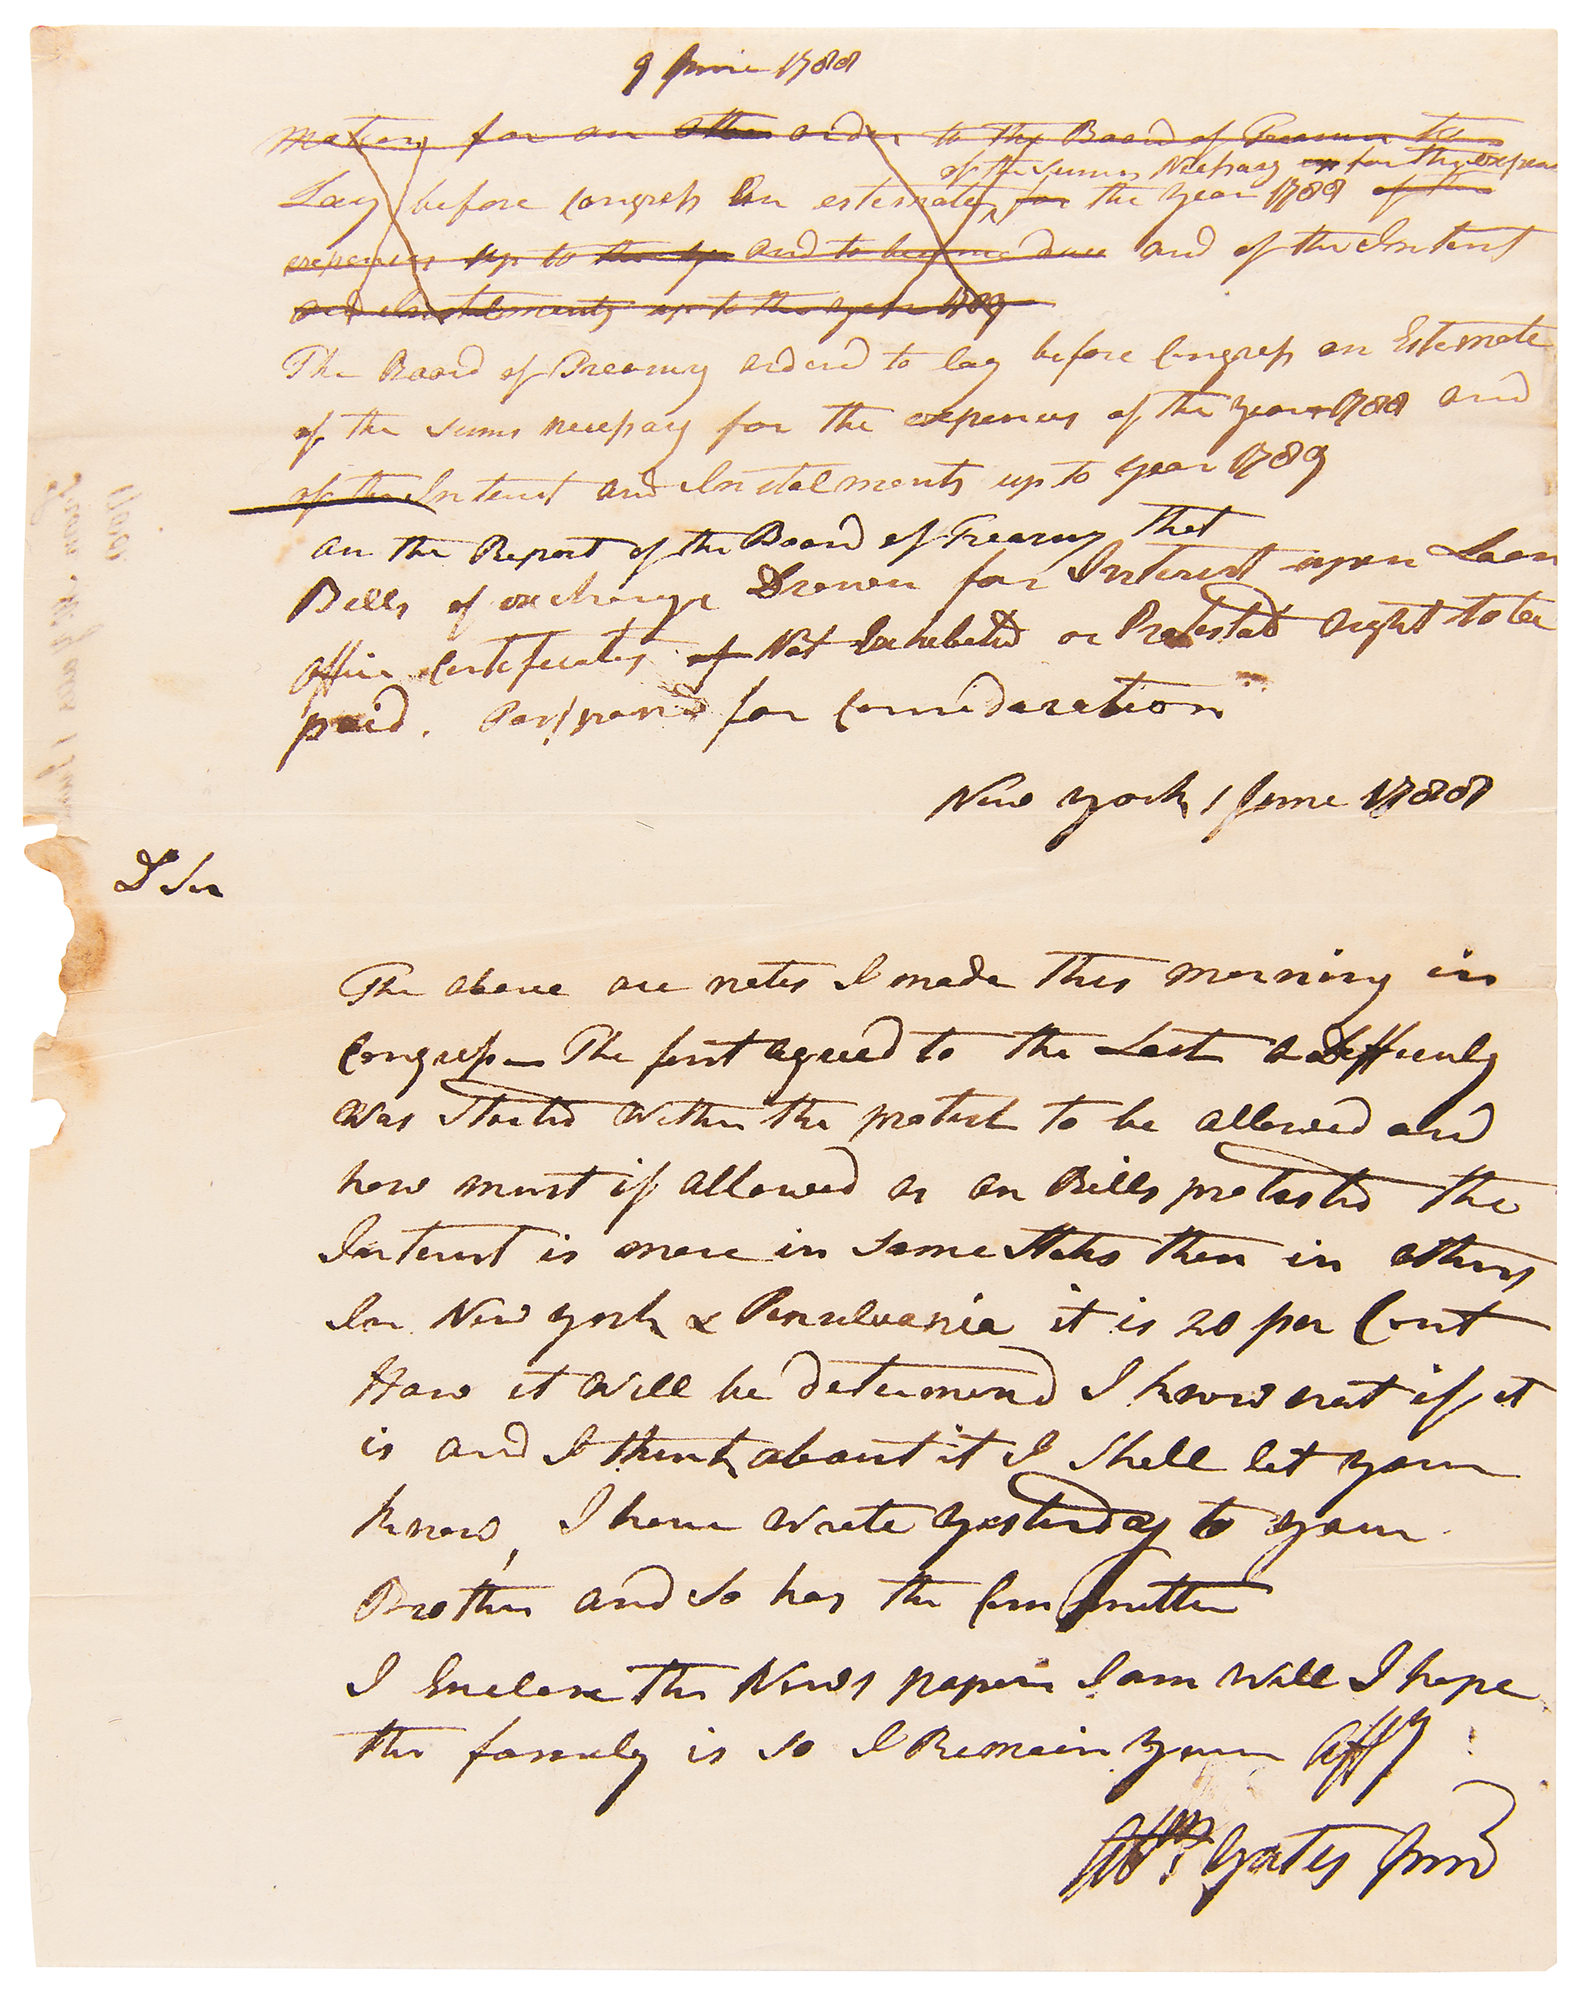 9 June 1788
Motion for an other order to the Board of Treasury to
of the sums Necessary for the expens
Lay before Congress an estemate for the Year 1788 of the
expences up to the and to become due and of the Interest
and Instalments up to the year 1789
The Board of Treasury ordered to lay before Congress an Estemate
of the sums necessary for the expences of the Year 1788 and
of the Interest and Instalments up to year 1789
on the Report of the Board of Treasury that
Bills of exchange Drawn for Interest upon Loan
office Certificates of Not Exhebeted or Protested ought to be
paid. Postponed for Consideration
New York 1 June 1788
Dr Sir
The above are notes I made this morning in
Congress The first agreed to the Last a Difficulty
was Started wether the protest to be allowed and
how must if allowed as on Bills protested the
Interest is more in Some States then in others
In New York & Pensilvania it is 20 per Cent
How it will be determend I know not if it
is and I think about it I shall let your
know, I have wrote yesterday to your
Brother and so has the Committee
I Enclose the News papers I am well I hope
the family is so I Remain Your Affy
Abm Yates Junr